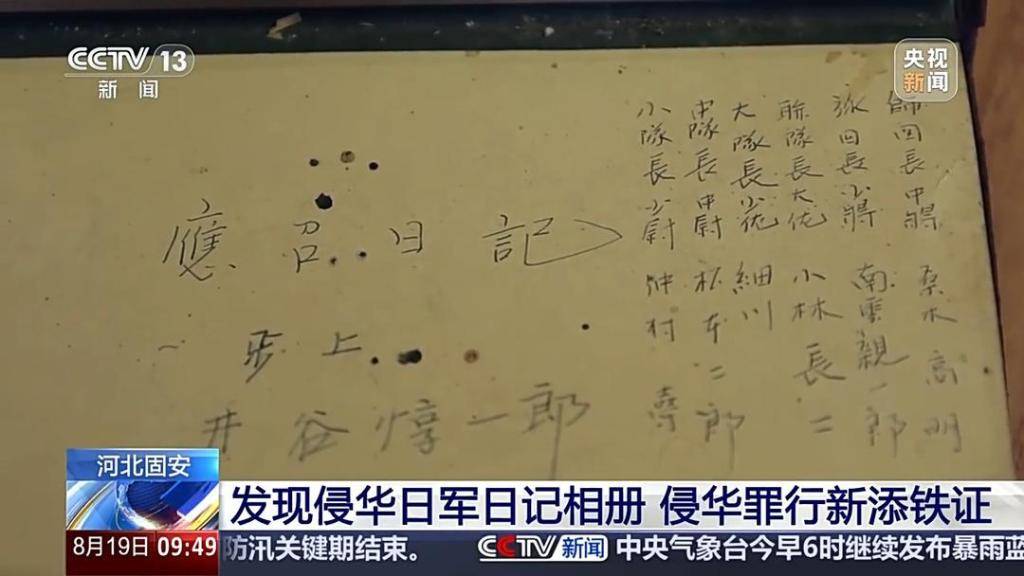 CCTV 13
新闻
央视
新闻
師団長中將 桑木高明
旅団長少將 南雲親一郎
聯隊長大佐 小林長二
大隊長少佐 細川
中隊長中尉 松本二郎
小隊長少尉 仲村
應召日記
步上
井谷惇一郎
河北固安
发现侵华日军日记相册 侵华罪行新添铁证
8月19日 09:49
防汛关键期结束。 CCTV 新闻 中央气象台今早6时继续发布暴雨蓝